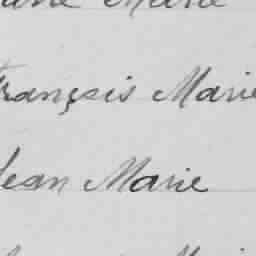 Marie
François Marie
Jean Marie